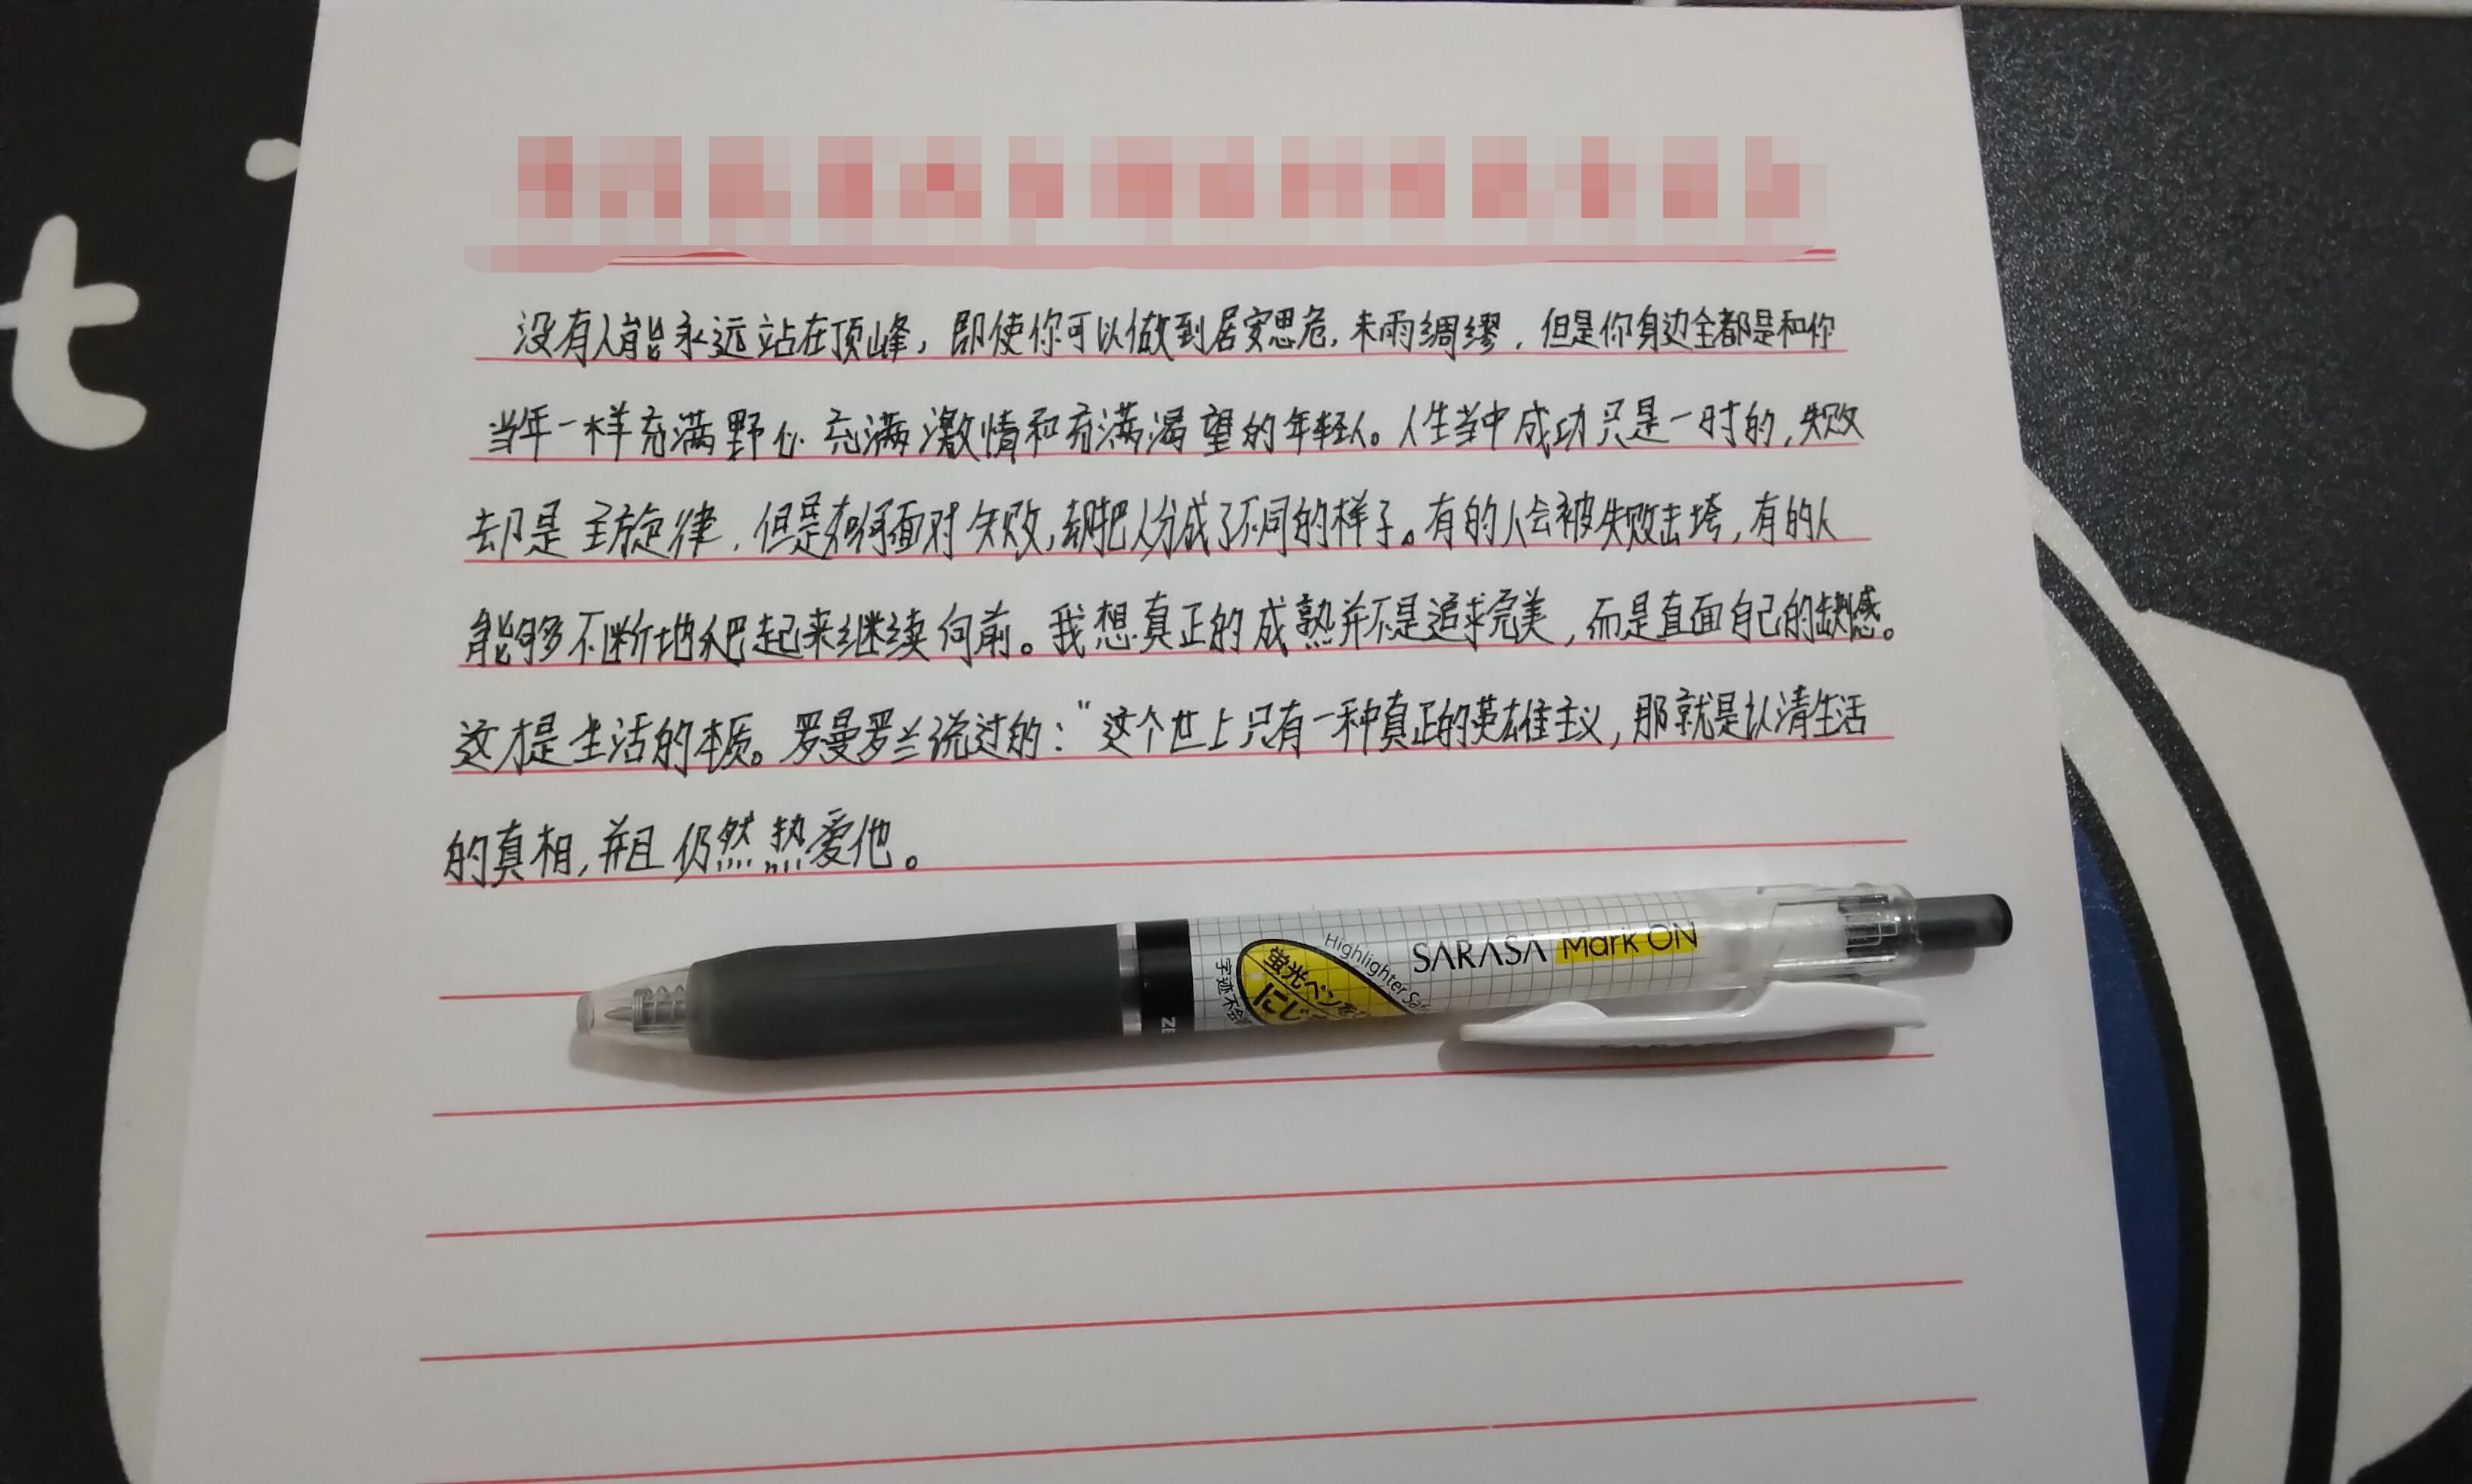 t
没有人能永远站在顶峰，即使你可以做到居安思危，未雨绸缪，但是你身边全都是和你
当年一样充满野心充满激情和充满渴望的年轻人。人生当中成功只是一时的，失败
却是主旋律，但是如何面对失败，却把人分成了不同的样子。有的人会被失败击垮，有的人
能够不断地爬起来继续向前。我想真正的成熟并不是追求完美，而是直面自己的缺憾。
这才是生活的本质。罗曼罗兰说过的："这个世上只有一种真正的英雄主义，那就是认清生活
的真相，并且仍然热爱他。
SARASA Mark ON
Highlighter
蛍光ペン
にじ
字迹不会